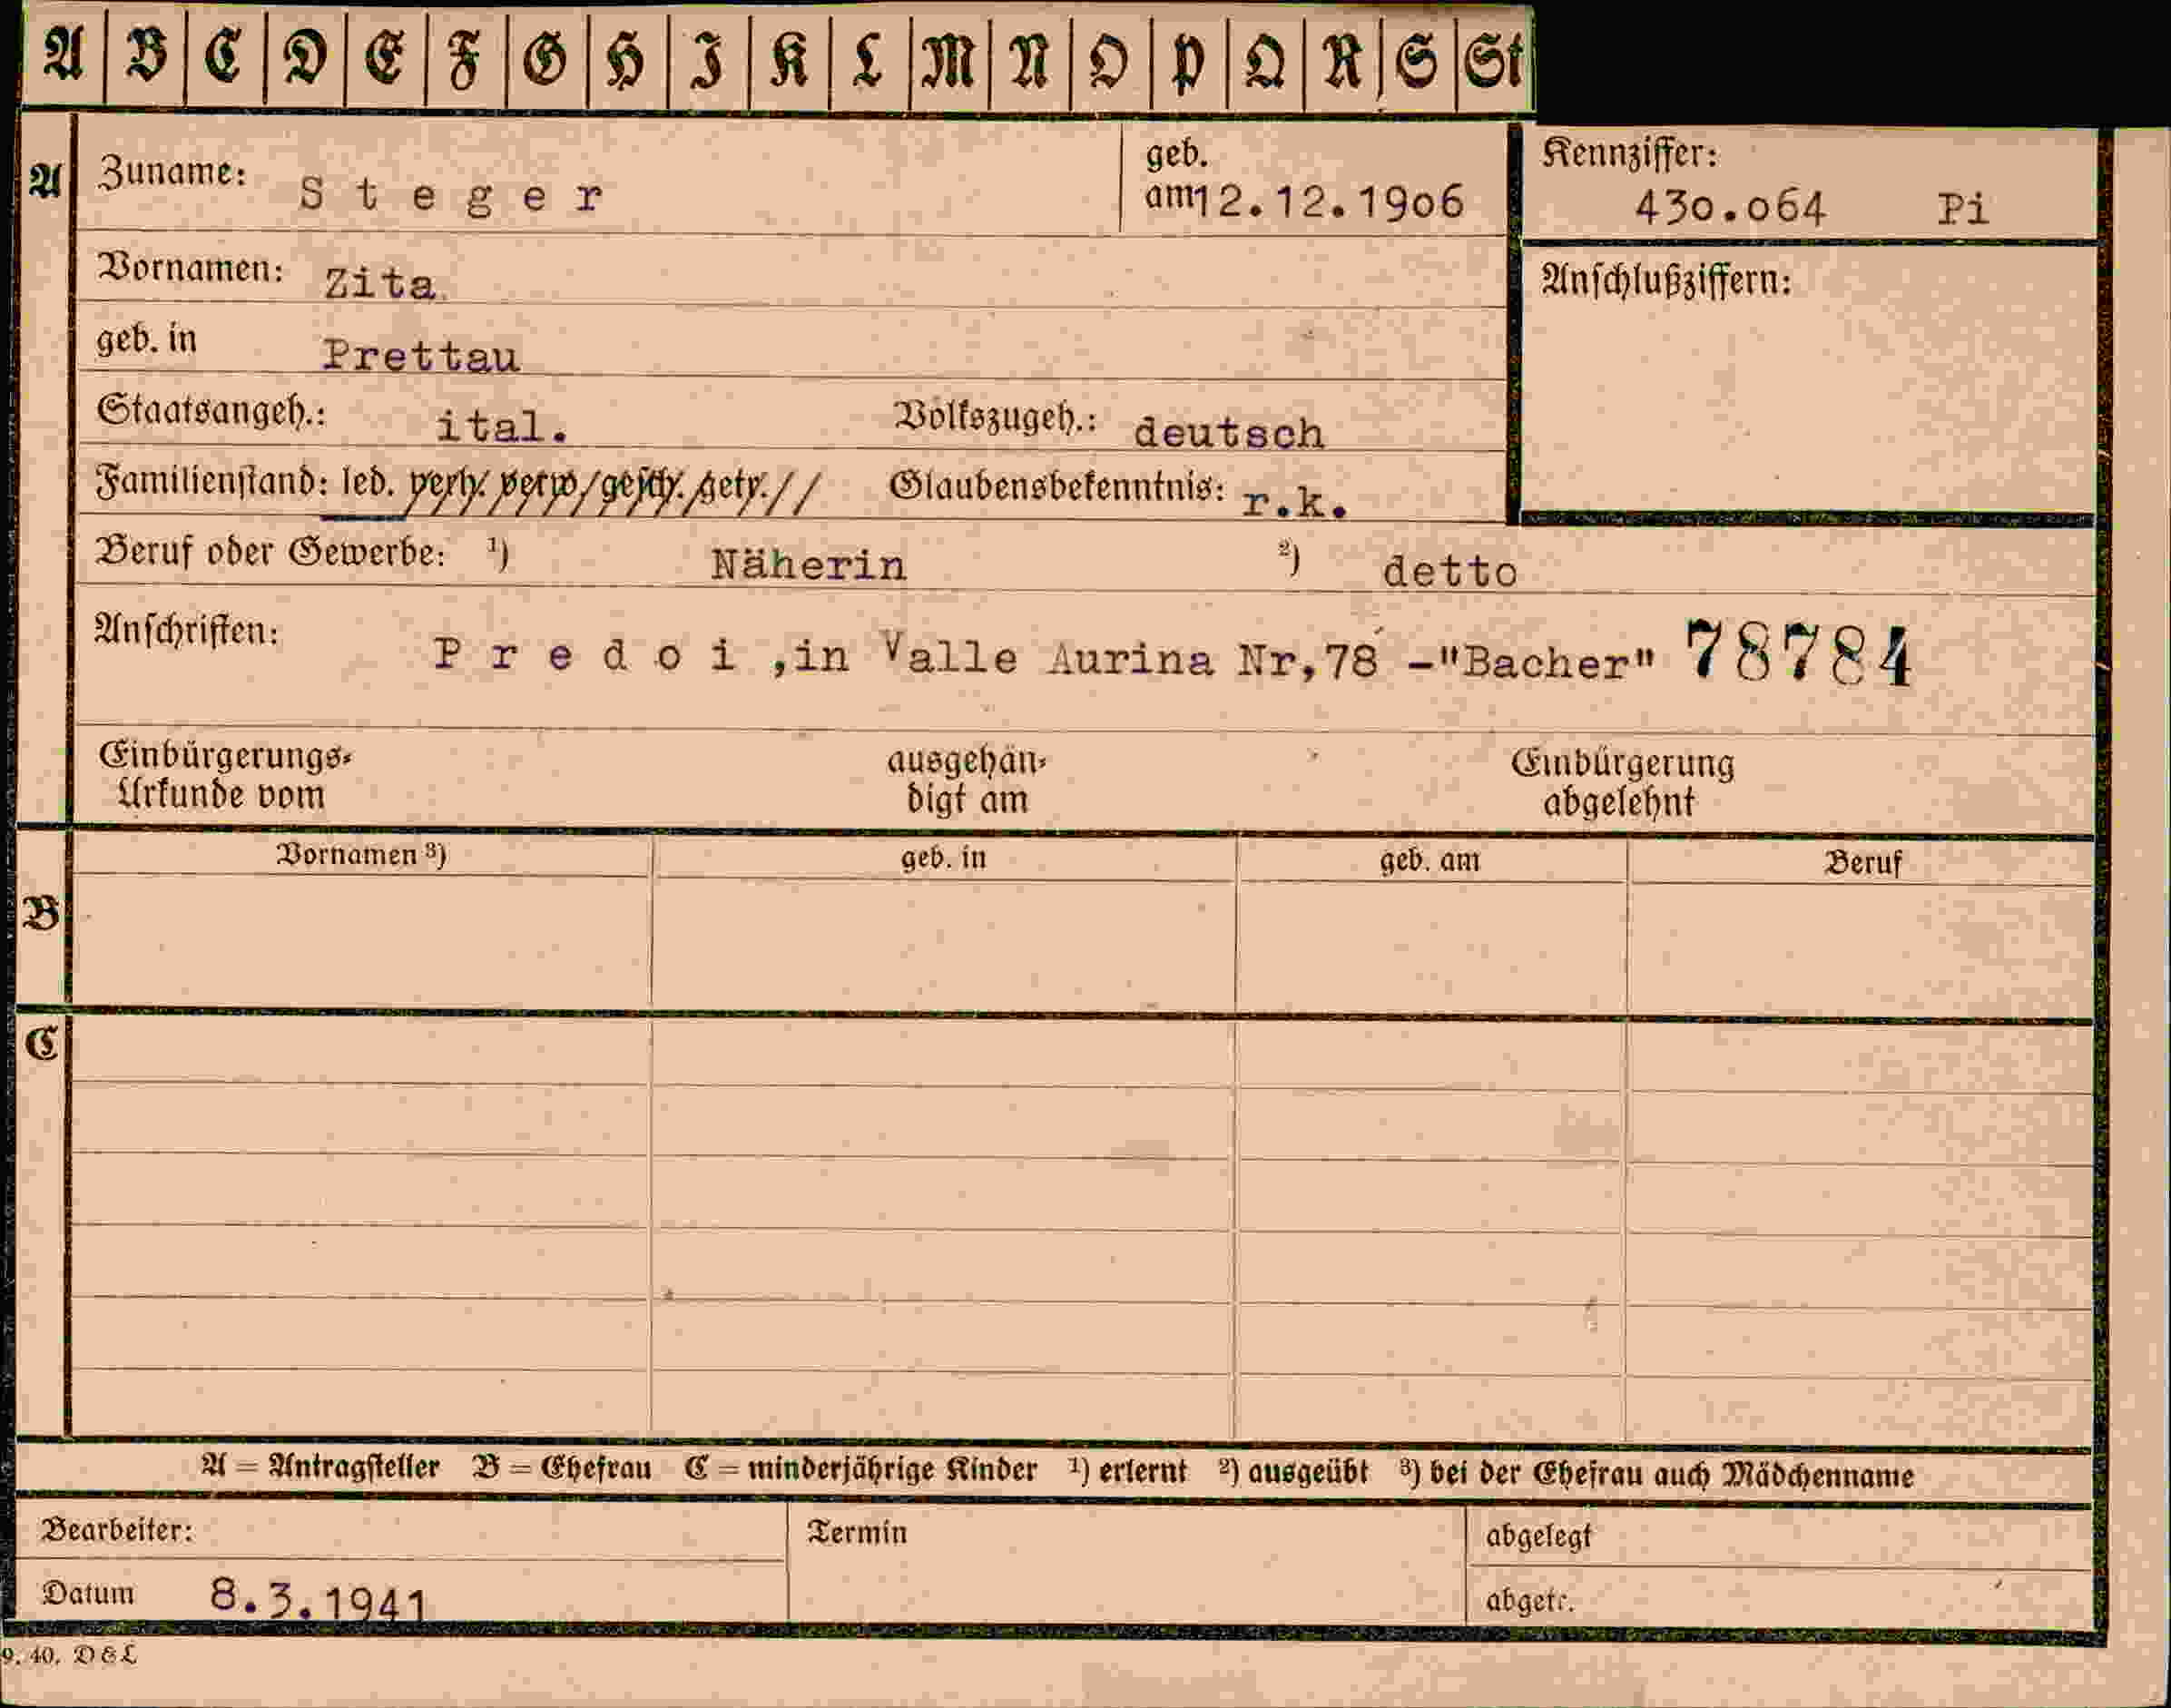 A B C D E F G H I K L M N O P Q R S St
A Zuname: Steger geb. am 12.12.1906 Kennziffer: 430.064 Pi
Vornamen: Zita Anschlußziffern:
geb. in Prettau
Staatsangeh.: ital. Volkszugeh.: deutsch
Familienstand: led. verh. verw. gesch. getr. Glaubensbekenntnis: r.k.
Beruf oder Gewerbe: ¹) Näherin ²) detto
Anschriften: Predoi ,in Valle Aurina Nr,78 -"Bacher" 78784
Einbürgerungs- ausgehän- Einbürgerung
Urkunde vom digt am abgelehnt
B Vornamen ³) geb. in geb. am Beruf
C
A = Antragsteller B = Ehefrau C = minderjährige Kinder ¹) erlernt ²) ausgeübt ³) bei der Ehefrau auch Mädchenname
Bearbeiter: Termin abgelegt
Datum 8.3.1941 abgetr.
9. 40. D & L